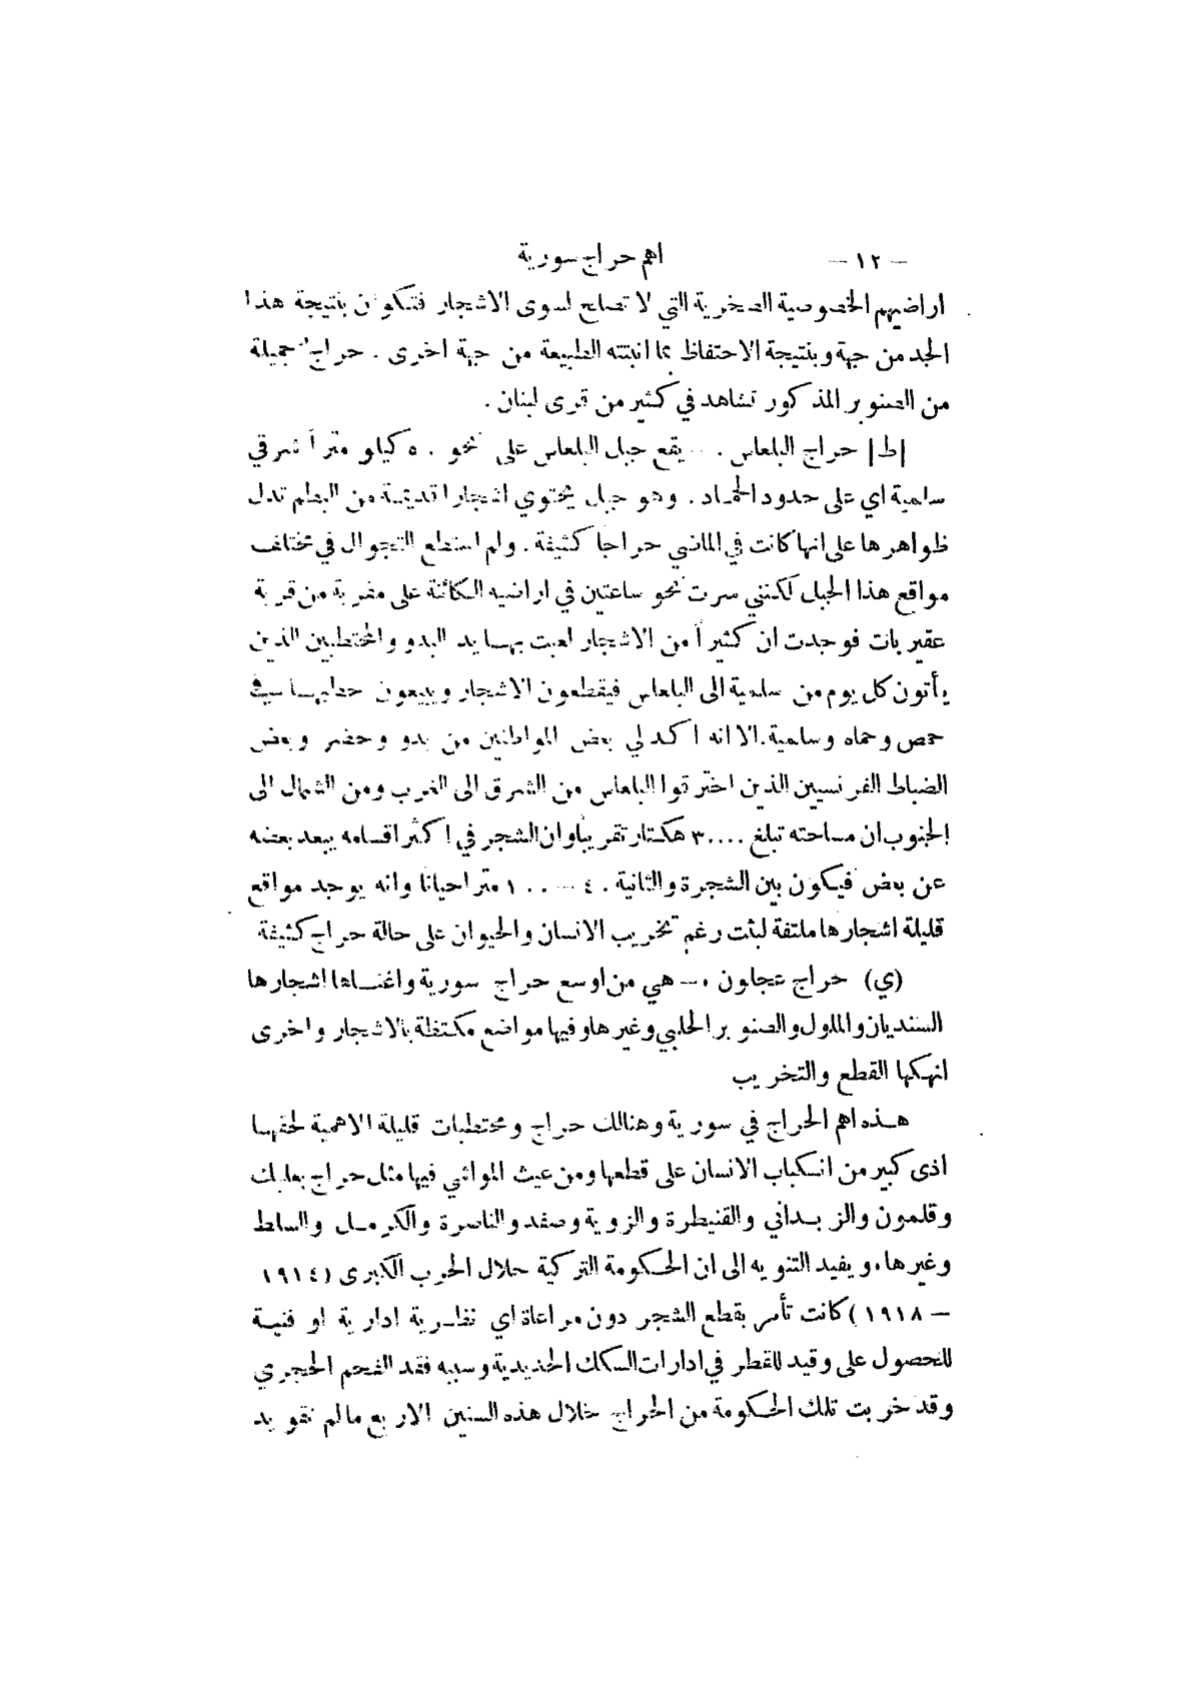 — ١٢ — اهم حراج سورية
اراضيهم الخصوصية الصخرية التي لا تصلح لسوى الاشجار فتتكون بنتيجة هذا
الجد من جهة وبنتيجة الاحتفاظ بما انبتته الطبيعة من جهة اخرى . حراج جميلة
من الصنوبر المذكور تشاهد في كثير من قرى لبنان .
|ط| حراج البلعاس . — يقع جبل البلعاس على نحو ٥٠ كيلو متراً شرقي
سلمية اي على حدود الحماد . وهو جبل يحتوي اشجارا قديمة من البطم تدل
ظواهرها على انها كانت في الماضي حراجا كثيفة . ولم استطع التجوال في مختلف
مواقع هذا الجبل لكنني سرت نحو ساعتين في اراضيه الكائنة على مقربة من قرية
عقيربات فوجدت ان كثيراً من الاشجار لعبت بها يد البدو والمحتطبين الذين
يأتون كل يوم من سلمية الى البلعاس فيقطعون الاشجار ويبيعون حطبها في
حمص وحماه وسلمية . الا انه اكد لي بعض المواطنين من بدو وحضر وبعض
الضباط الفرنسيين الذين اخترقوا البلعاس من الشرق الى الغرب ومن الشمال الى
الجنوب ان مساحته تبلغ ٣٠٠٠٠ هكتار تقريباً وان الشجر في اكثر اقسامه يبعد بعضه
عن بعض فيكون بين الشجرة والثانية ٤٠ — ١٠٠ متر احيانا وانه يوجد مواقع
قليلة اشجارها ملتفة لبثت رغم تخريب الانسان والحيوان على حالة حراج كثيفة
(ي) حراج عجلون . — هي من اوسع حراج سورية واغناها اشجارها
السنديان والملول والصنوبر الحلبي وغيرها وفيها مواضع مكتظة بالاشجار واخرى
انهكها القطع والتخريب
هذه اهم الحراج في سورية وهنالك حراج ومحتطبات قليلة الاهمية لحقها
اذى كبير من انكباب الانسان على قطعها ومن عيث المواشي فيها مثل حراج بعلبك
وقلمون والزبداني والقنيطرة والزوية وصفد والناصرة والكرمل والسلط
وغيرها . ويفيد التنويه الى ان الحكومة التركية خلال الحرب الكبرى (١٩١٤
— ١٩١٨) كانت تأمر بقطع الشجر دون مراعاة اي نظرية ادارية او فنية
للحصول على وقيد للقطر في ادارات السكك الحديدية وسببه فقد الفحم الحجري
وقد خربت تلك الحكومة من الحراج خلال هذه السنين الاربع ما لم تقو يد